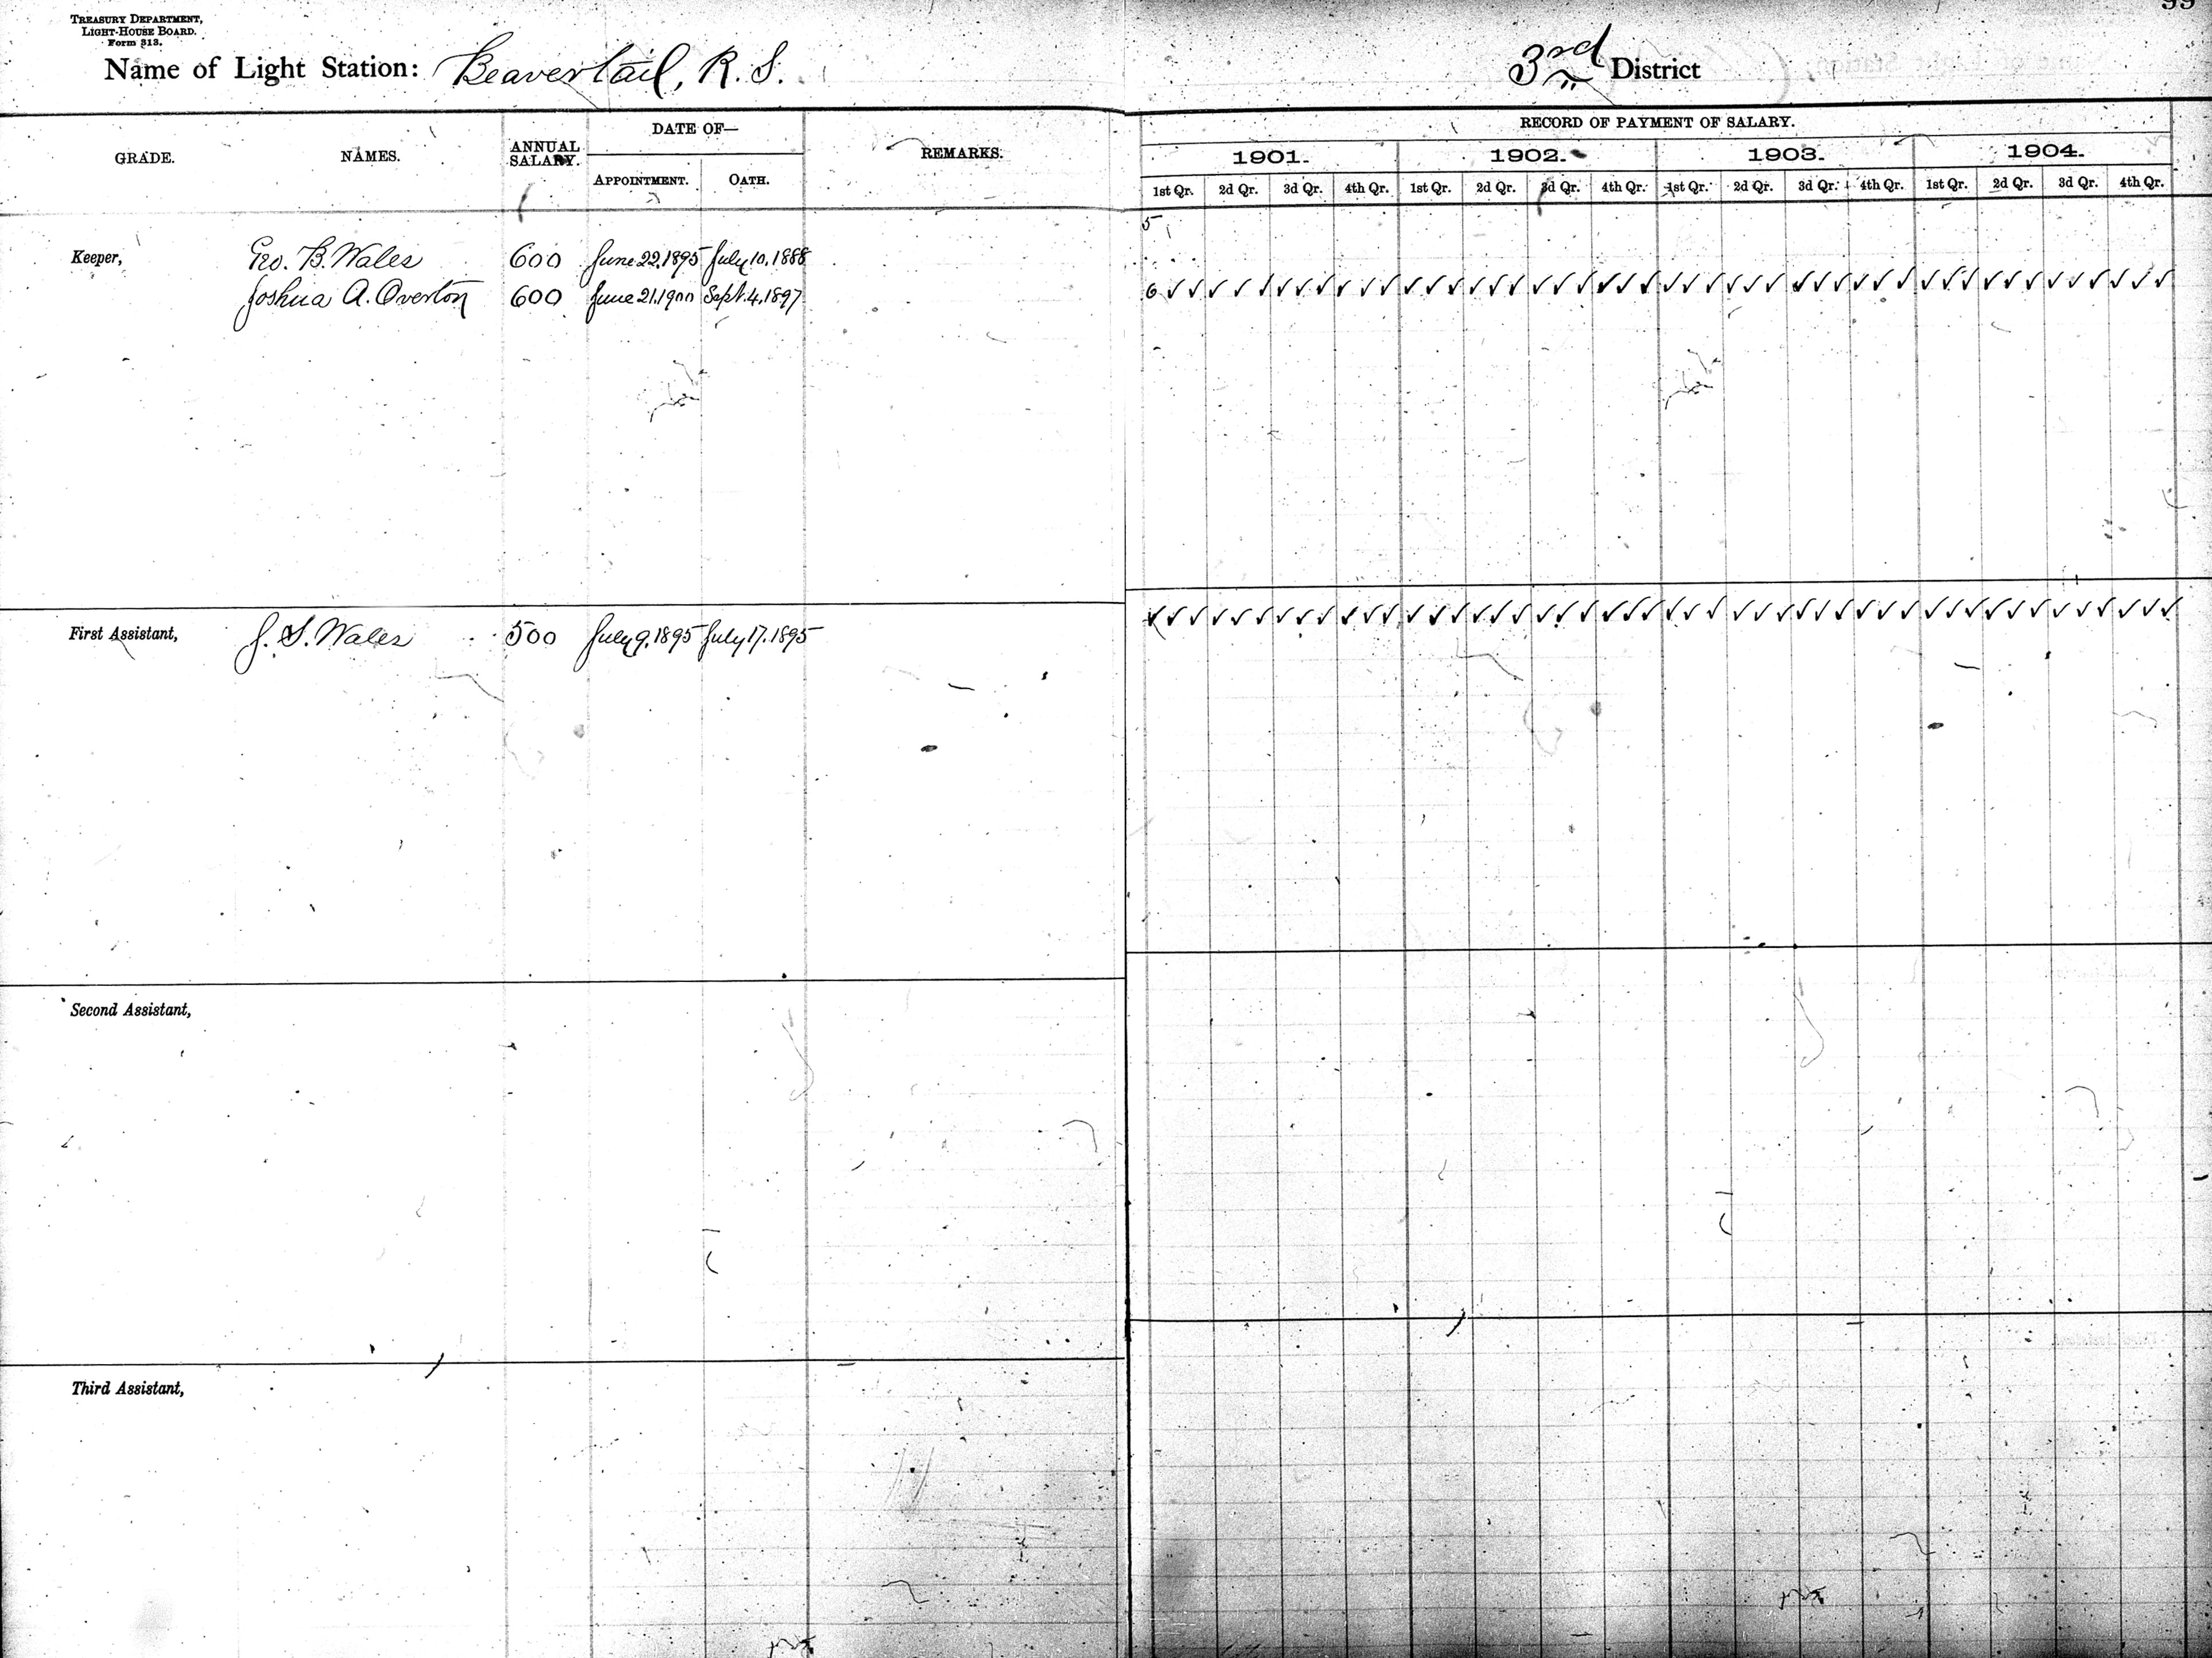 TREASURY DEPARTMENT,
LIGHT-HOUSE BOARD.
Form 313.
99
Name of Light Station: Beavertail, R. I. 3rd District
GRADE. NAMES. ANNUAL SALARY. DATE OF— REMARKS. RECORD OF PAYMENT OF SALARY.
APPOINTMENT. OATH.
1901. 1902. 1903. 1904.
1st Qr. 2d Qr. 3d Qr. 4th Qr. 1st Qr. 2d Qr. 3d Qr. 4th Qr. 1st Qr. 2d Qr. 3d Qr. 4th Qr. 1st Qr. 2d Qr. 3d Qr. 4th Qr.
5
Keeper, Geo. B. Wales 600 June 22, 1895 July 10, 1888
Joshua A. Overton 600 June 21, 1900 Sept. 4, 1897 6 ✓✓ ✓✓✓ ✓✓✓ ✓✓✓ ✓✓✓ ✓✓✓ ✓✓✓ ✓✓✓ ✓✓✓ ✓✓✓ ✓✓✓ ✓✓✓ ✓✓✓ ✓✓✓ ✓✓✓ ✓✓✓
First Assistant, J. S. Wales 500 July 9, 1895 July 17, 1895 ✓✓✓ ✓✓✓ ✓✓✓ ✓✓✓ ✓✓✓ ✓✓✓ ✓✓✓ ✓✓✓ ✓✓✓ ✓✓✓ ✓✓✓ ✓✓✓ ✓✓✓ ✓✓✓ ✓✓✓ ✓✓✓
Second Assistant,
Third Assistant,